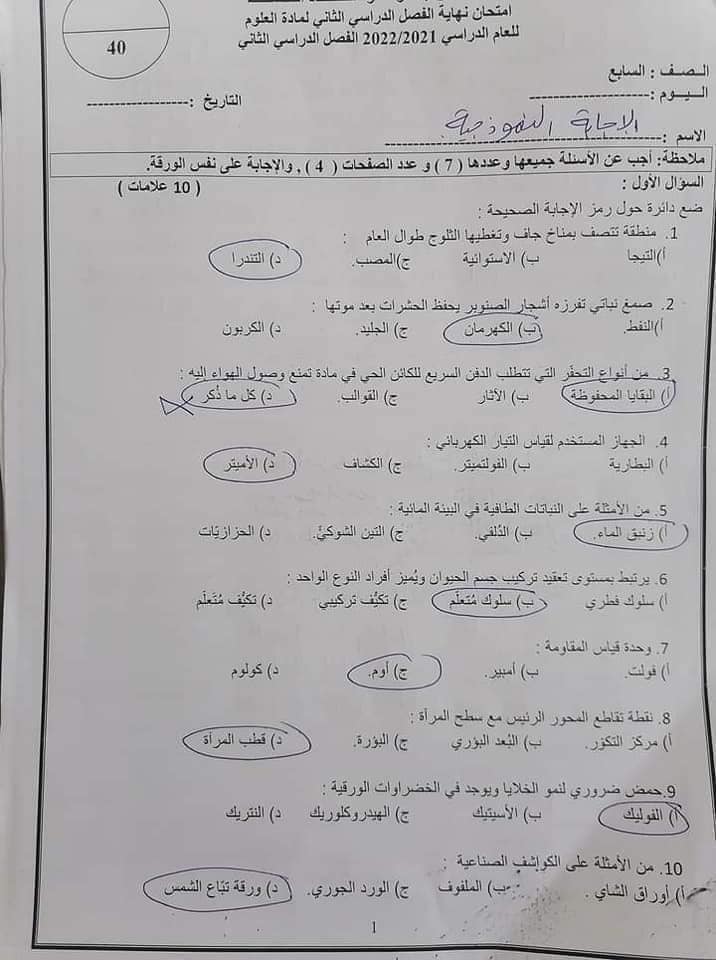 امتحان نهاية الفصل الدراسي الثاني لمادة العلوم
للعام الدراسي 2022/2021 الفصل الدراسي الثاني
40
الـصـف : السابع
اليـوم : --------------------
التاريخ : -----------------
الاسم : الإجابة النموذجية
ملاحظة: أجب عن الأسئلة جميعها وعددها ( 7 ) و عدد الصفحات ( 4 ) , والإجابة على نفس الورقة.
السؤال الأول : ( 10 علامات )
ضع دائرة حول رمز الإجابة الصحيحة :
1. منطقة تتصف بمناخ جاف وتغطيها الثلوج طوال العام :
أ)التيجا ب) الاستوائية ج)المصب. د) التندرا
2. صمغ نباتي تفرزه أشجار الصنوبر يحفظ الحشرات بعد موتها :
أ)النفط. ب) الكهرمان ج) الجليد. د) الكربون
3. من أنواع التحفّر التي تتطلب الدفن السريع للكائن الحي في مادة تمنع وصول الهواء إليه :
أ) البقايا المحفوظة ب) الآثار ج) القوالب. د) كل ما ذُكر
4. الجهاز المستخدم لقياس التيار الكهربائي :
أ) البطارية ب) الفولتميتر. ج) الكشاف د) الأميتر
5. من الأمثلة على النباتات الطافية في البيئة المائية :
أ) زنبق الماء. ب) الدُلفي. ج) التين الشوكيّ. د) الحزازيّات
6. يرتبط بمستوى تعقيد تركيب جسم الحيوان ويُميز أفراد النوع الواحد :
أ) سلوك فطري ب) سلوك مُتعلّم ج) تكيُّف تركيبي د) تكيُّف مُتَعلّم
7. وحدة قياس المقاومة :
أ) فولت. ب) أمبير. ج) أوم. د) كولوم
8. نقطة تقاطع المحور الرئيس مع سطح المرآة :
أ) مركز التكوّر. ب) البُعد البؤري ج) البؤرة. د) قطب المرآة
9.حمض ضروري لنمو الخلايا ويوجد في الخضراوات الورقية :
أ) الفوليك ب) الأسيتيك ج) الهيدروكلوريك د) النتريك
10. من الأمثلة على الكواشف الصناعية :
أ) أوراق الشاي . ب) الملفوف ج) الورد الجوري. د) ورقة تبّاع الشمس
1